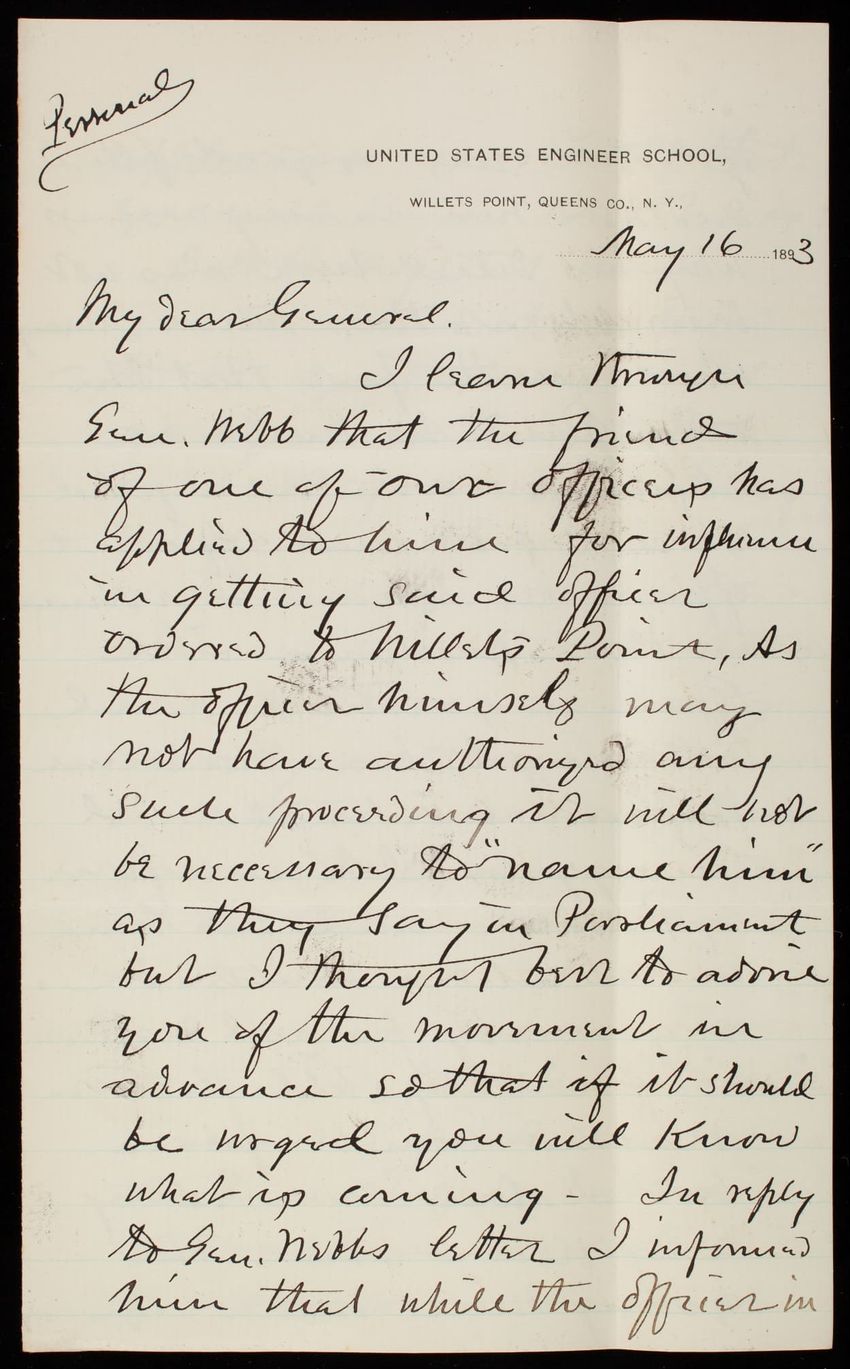 Personal
UNITED STATES ENGINEER SCHOOL,
WILLETS POINT, QUEENS CO., N. Y.,
May 16 1893
My dear General.
I learn through
Gen. Webb that the friend
of one of our officers has
applied to him for influence
in getting said officer
ordered to Willets Point, As
the officer himself may
not have authorized any
such proceeding it will not
be necessary to "name him"
as they say in Parliament
but I thought best to advise
you of the movement in
advance so that if it should
be urged you will know
what is coming - In reply
to Gen. Webbs letter I informed
him that while the officer in